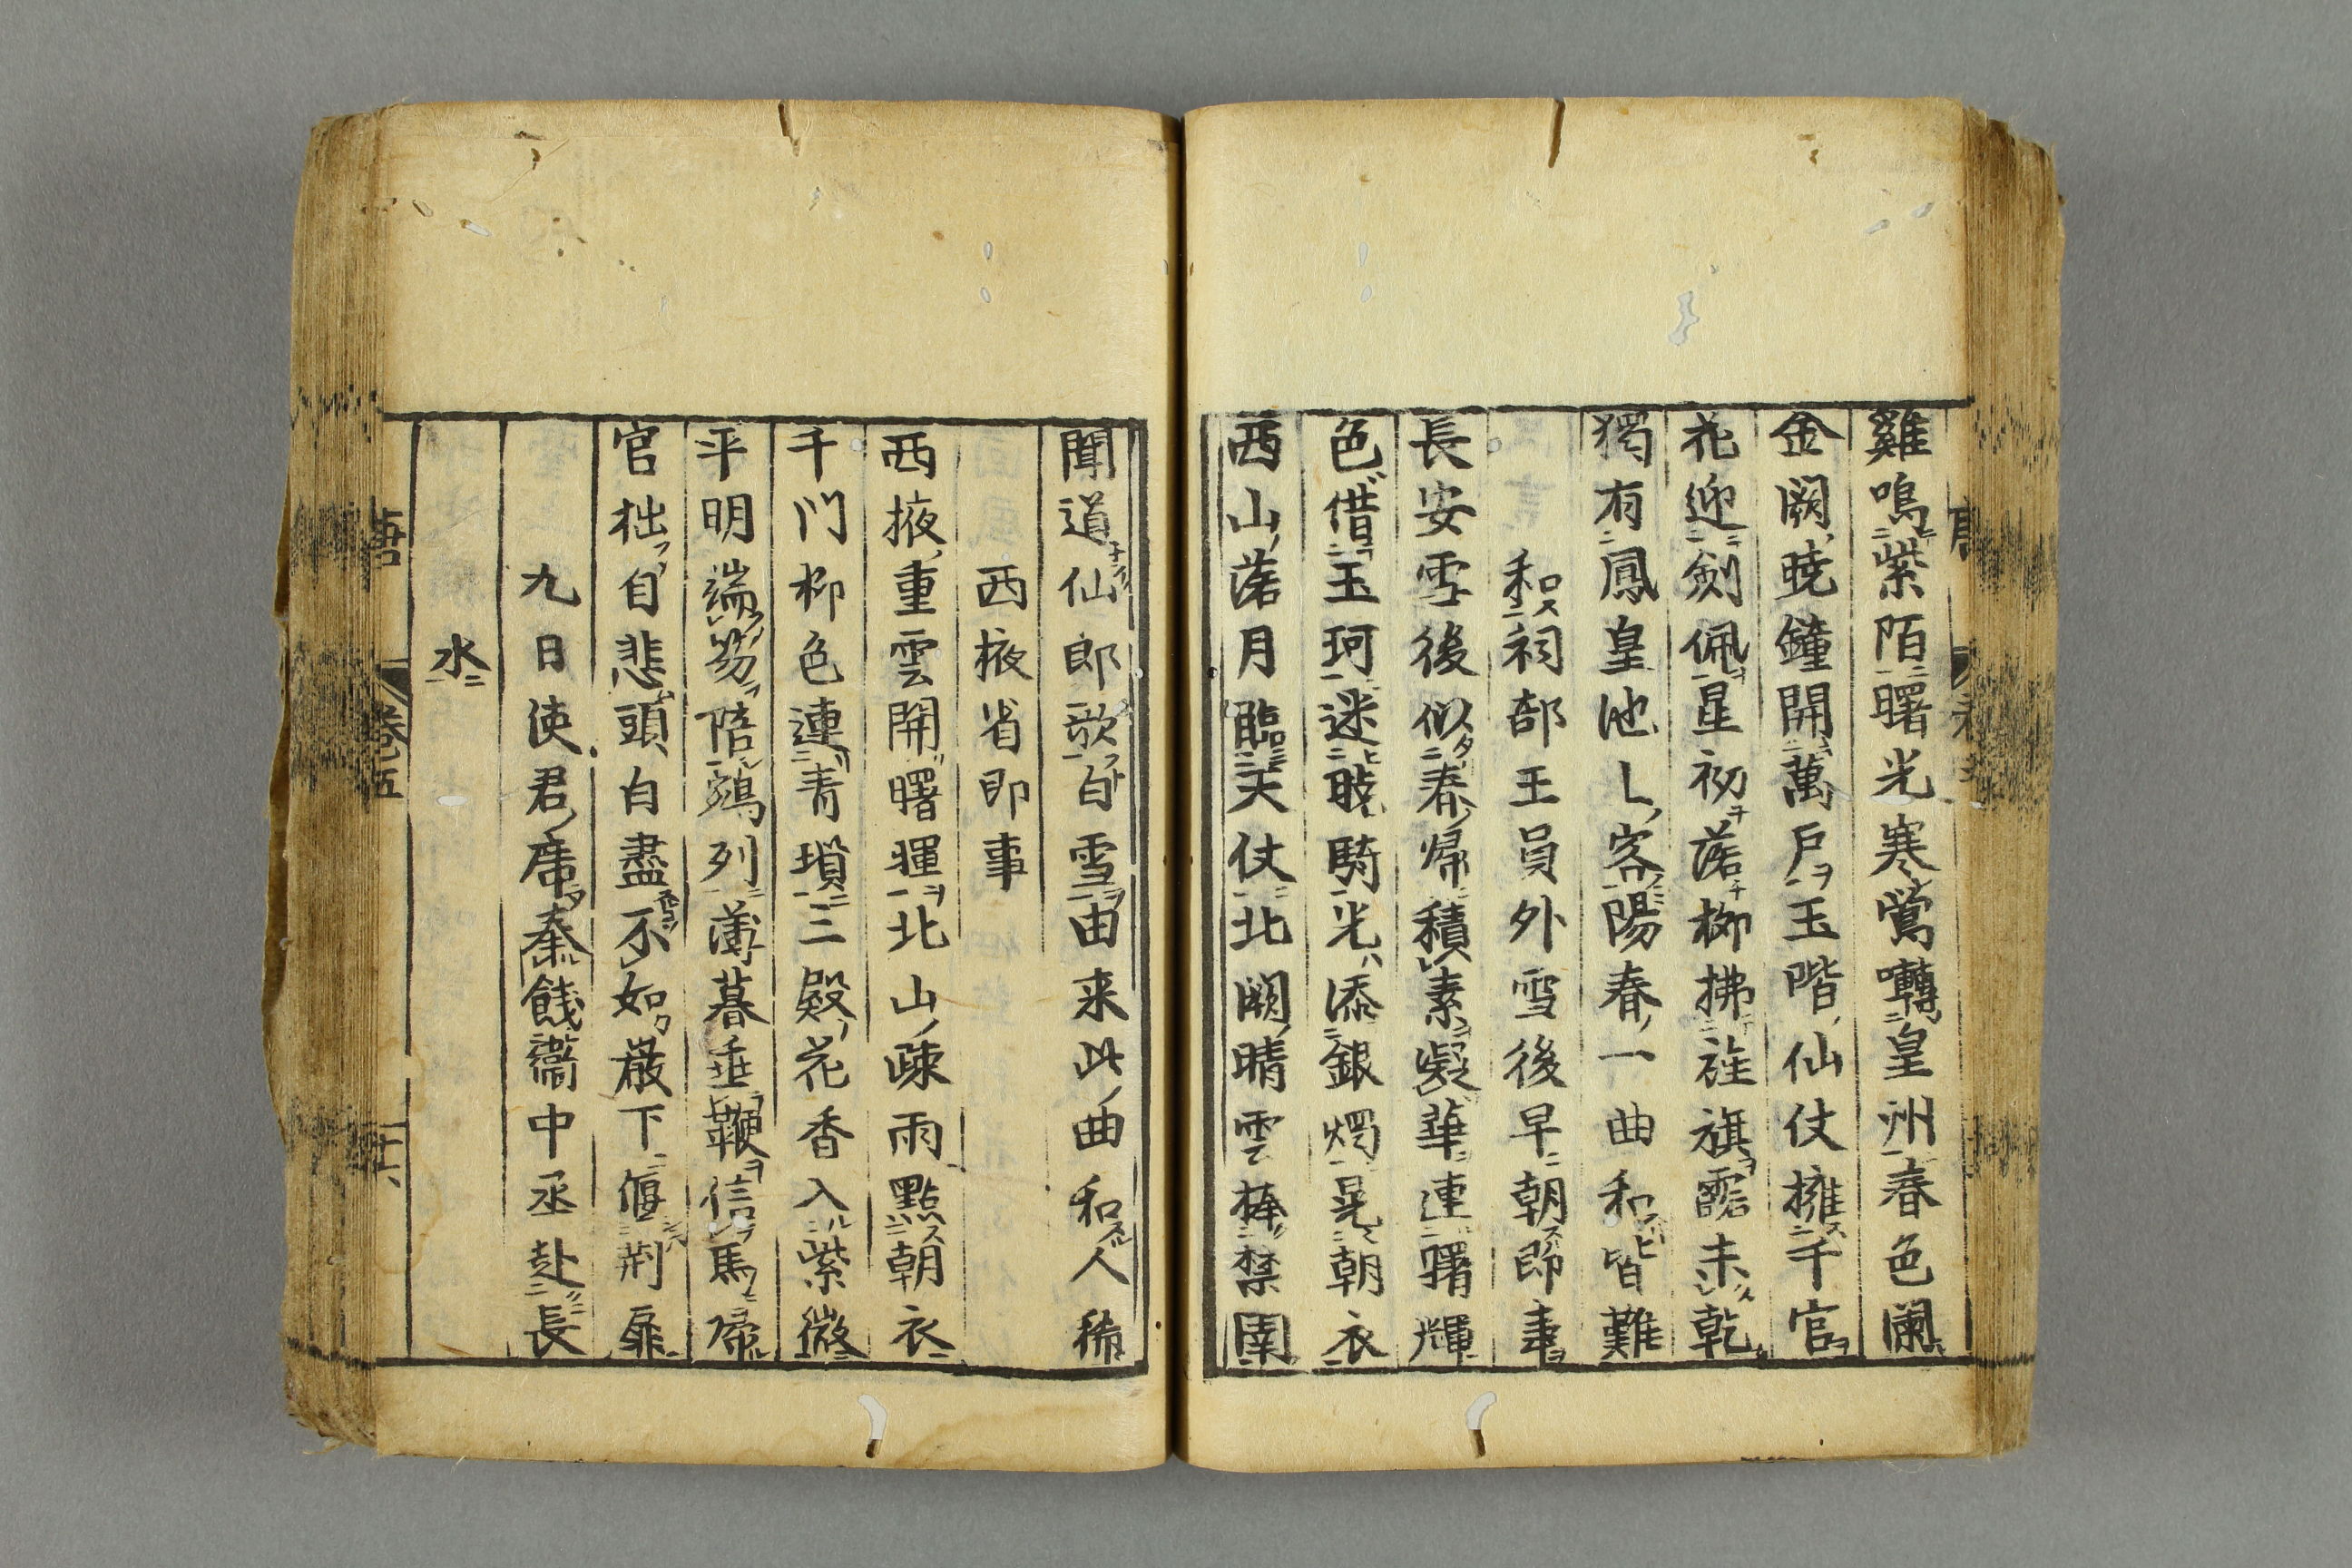 雞鳴紫陌曙光寒鶯囀皇州春色闌
金闕曉鐘開萬戸玉階仙仗擁千官
花迎劍佩星初落柳拂旌旗露未乾
獨有鳳皇池乚客陽春一曲和皆難
和祠部王員外雪後早朝即事
長安雪後似春歸積素凝華連曙輝
色借玉珂迷曉騎光添銀燭晃朝衣
西山落月臨天仗北闕晴雲捧禁闈
聞道仙郎歌白雪由来此曲和人稀
西掖省即事
西掖重雲開曙暉北山疎雨點朝衣
千門柳色連青瑣三殿花香入紫微
平明端笏陪鵷列薄暮垂鞭信馬歸
官拙自悲頭白盡不如巌下偃荊扉
九日使君席奉餞衞中丞赴長
水
唐 卷五 十六